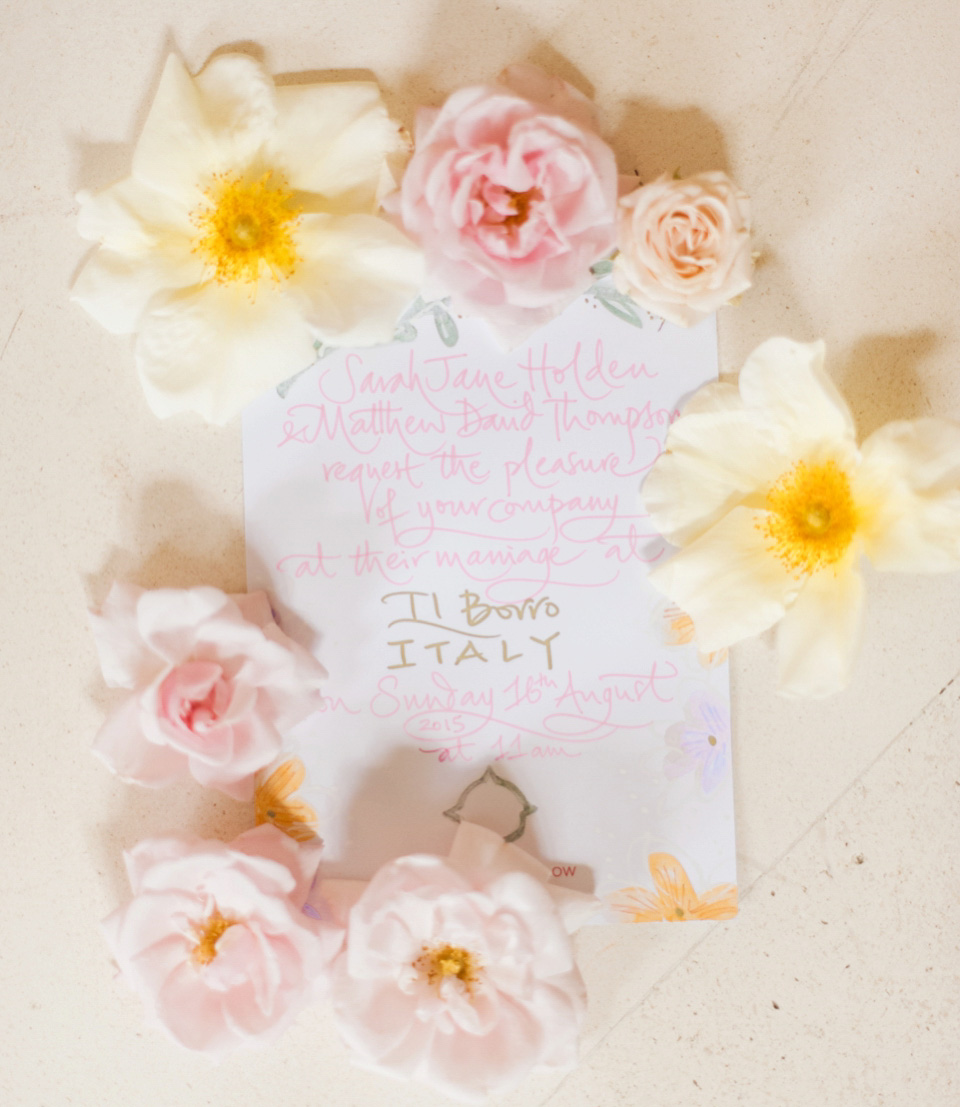 Sarah Jane Holden
& Matthew David Thompson
request the pleasure
of your company
at their marriage at
Il Borro
ITALY
on Sunday 16th August
2015
at 11am
OW